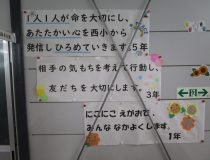 1人1人が命を大切にし、
あたたかい心を西小から
発信しひろめていきます。5年
相手の気もちを考えて行動し、
友だちを大切にします。
3年
にこにこえがおで、
みんななかよくします。
1年